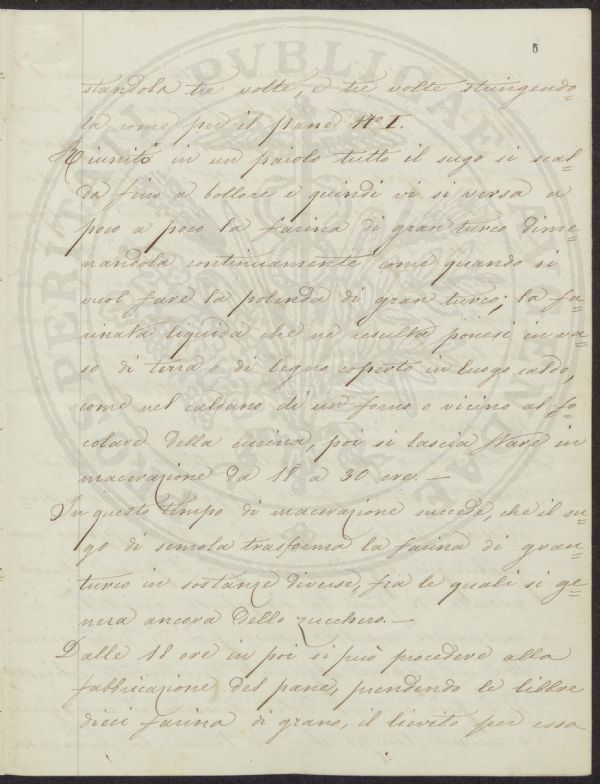 5
standola tre volte, e tre volte stringendo=
la come per il pane N.º I.
Riunito in un paiolo tutto il sugo si scal=
da fino a bollore e quindi vi si versa a
poco a poco la farina di gran turco dime=
nandola continuamente come quando si
vuol fare la polenda di gran turco; la fa=
rinata liquida che ne resulta ponesi in va=
so di terra o di legno coperto in luogo caldo,
come nel caldano di un forno o vicino al fo=
colare della cucina, poi si lascia stare in
macerazione da 18 a 30 ore.—
In questo tempo di macerazione succede, che il su=
go di semola trasforma la farina di gran=
turco in sostanze diverse, fra le quali si ge=
nera ancora dello zucchero.—
Dalle 18 ore in poi si può procedere alla
fabbricazione del pane, prendendo le libbre
dieci farina di grano, il lievito per essa